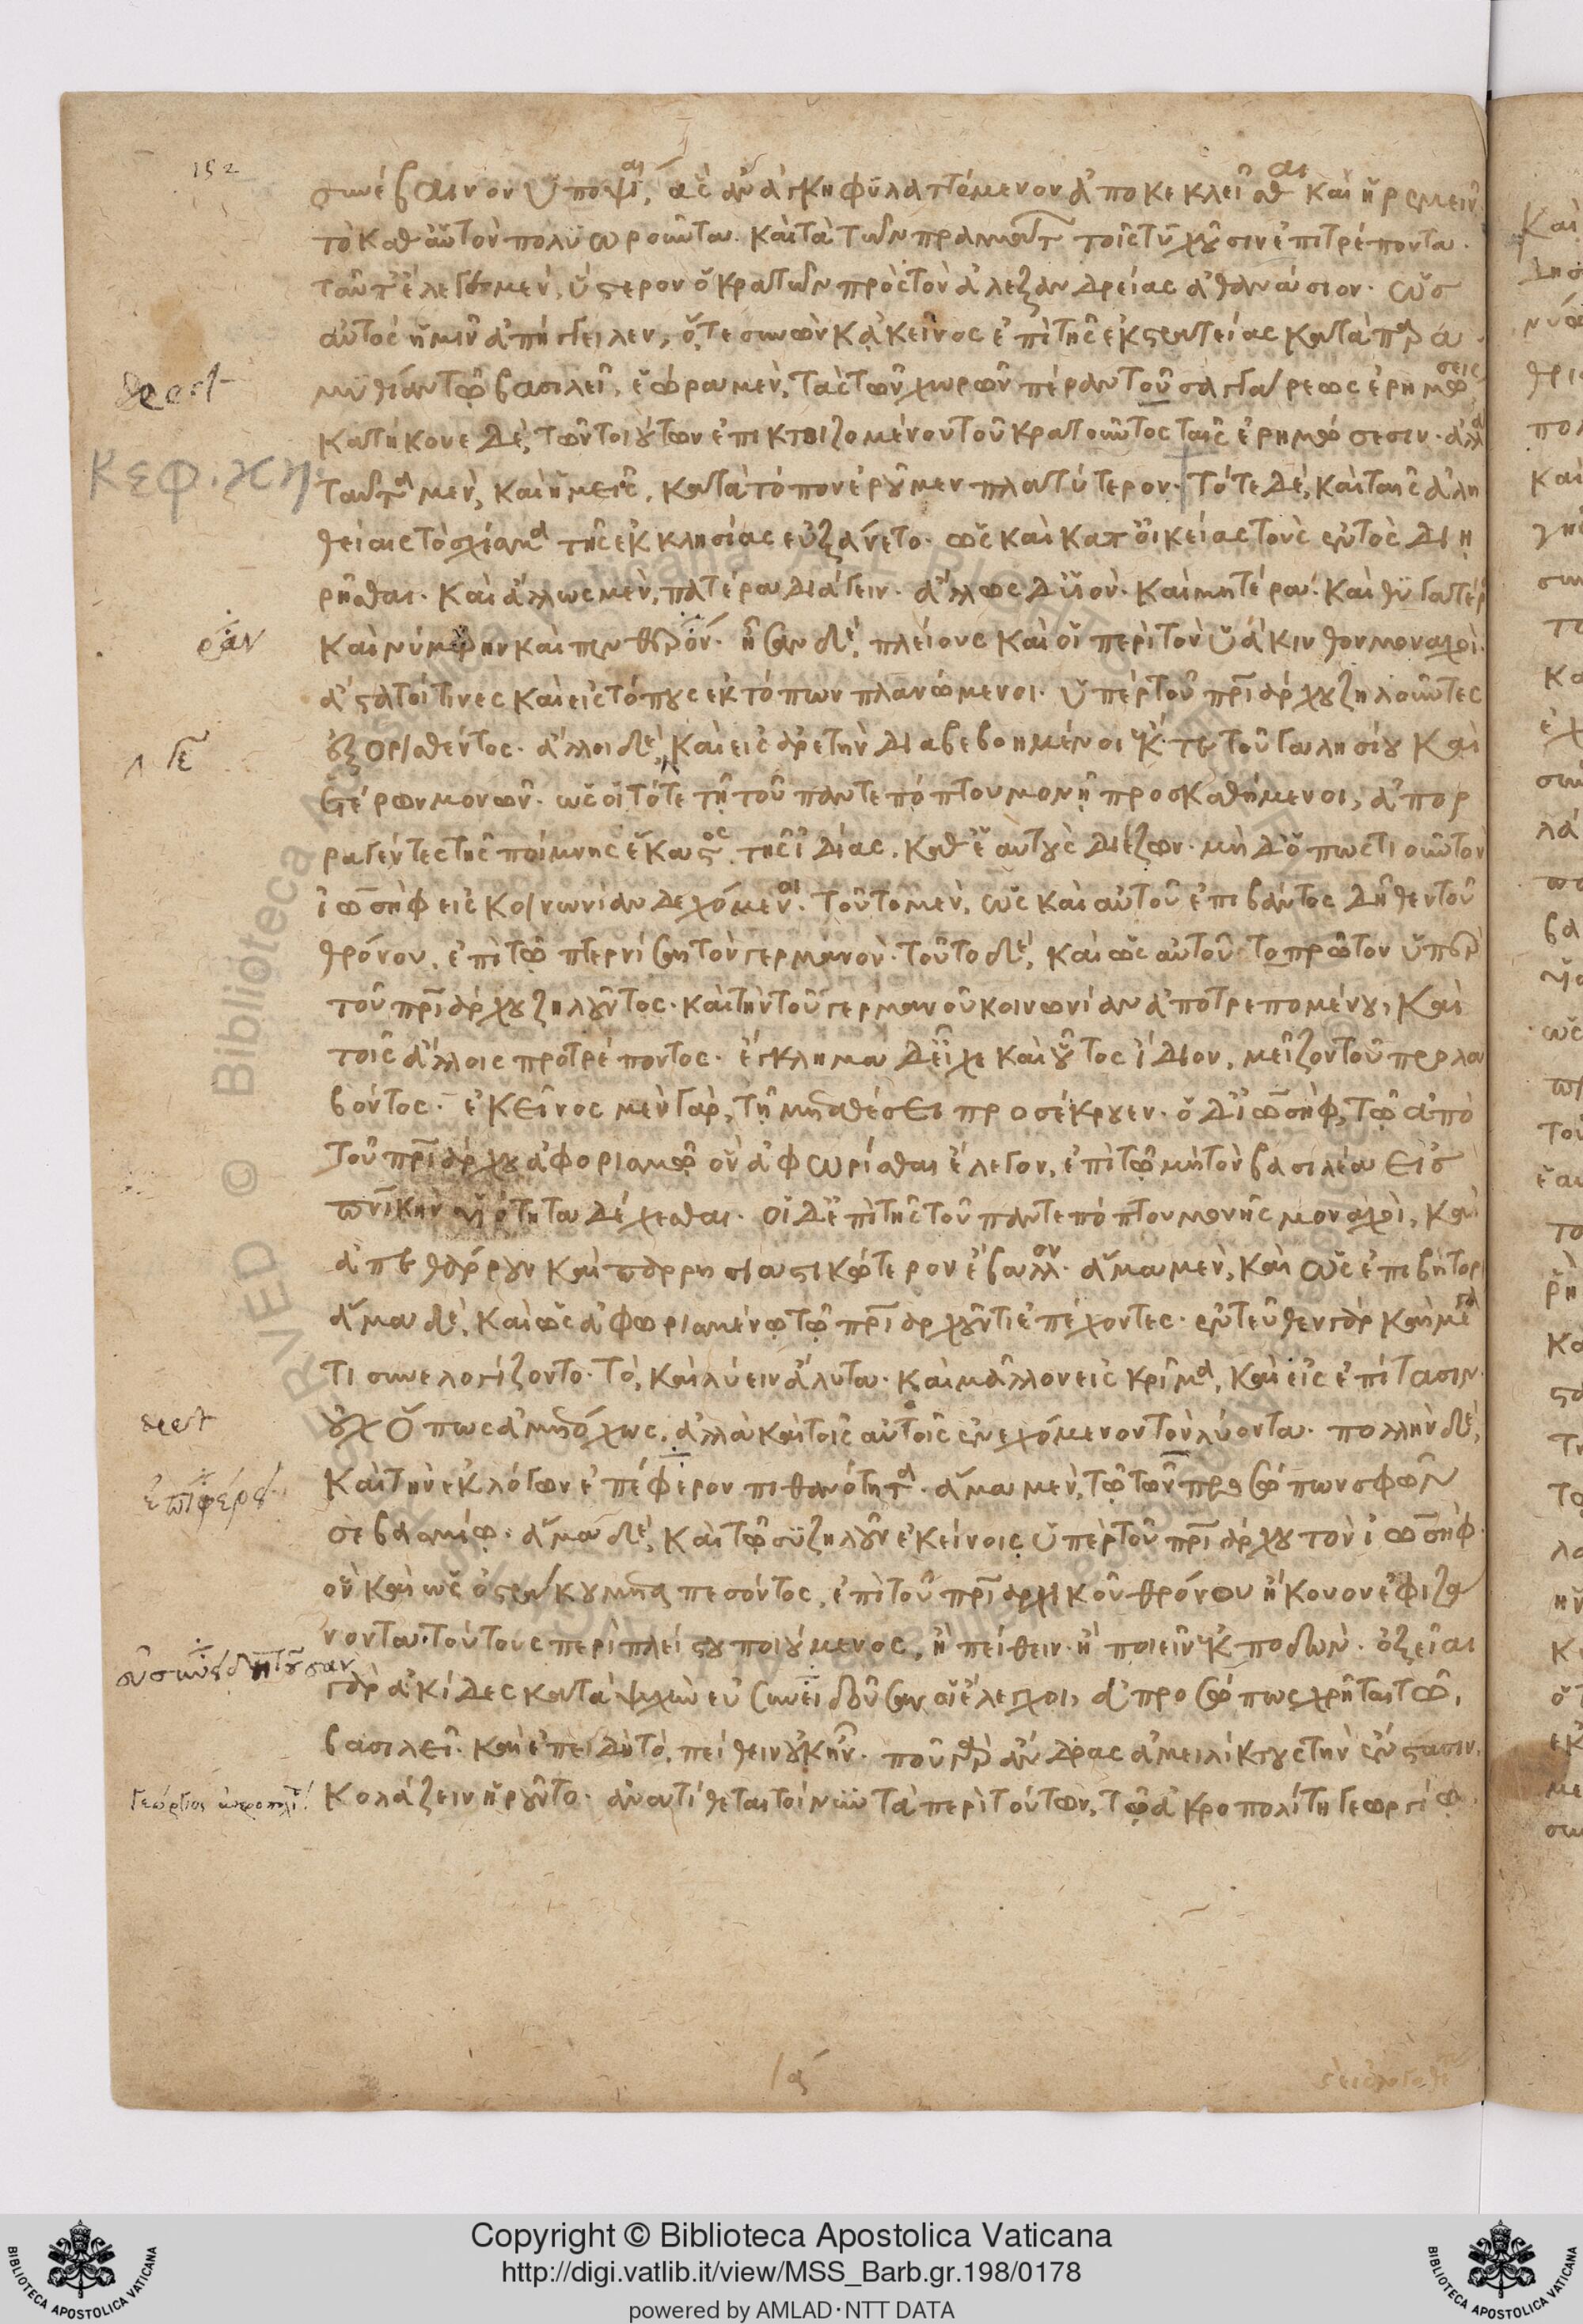 152
συνέβαινον ὑποψίαι, ὡς ἀνάγκη φυλαττόμενον ἀποκεκλεῖσθαι καὶ ἠρεμεῖν
τὸ καθ αὑτὸν πολυωροῦντα. καὶ τὰ τῶν πραγμάτ τοῖς τυχοῦσιν ἐπιτρέποντα.
ταῦτ ἔλεγε μὲν, ὕστερον ὁ κρατῶν πρὸς τὸν ἀλεξανδρείας ἀθανάσιον. ὡς
αὐτὸς ἡμῖν ἀπήγγειλεν, ὅτε συνὼν κἀκεῖνος ἐπὶ τῆς ἐκστρατείας κατὰ παρα
μυθίαν τῷ βασιλεῖ, ἑώρα μὲν, τὰς τῶν χωρῶν πέραν τοῦ σαγγάρεως ἐρημώσεις
deest
κατήκουε δὲ, τῶν τοιούτων ἐπικτιζομένου τοῦ κρατοῦντος ταῖς ἐρημώσεσιν. ἀλλὰ
κεφ. κη
ταῦτα μὲν, καὶ ἡμεῖς, κατὰ τόπον ἐροῦμεν πλατύτερον. τότε δὲ, καὶ ταῖς ἀλη
θείαις τὸ σχίσμα τῆς ἐκκλησίας ηὐξάνετο. ὡς καὶ κατ οἰκείας τοὺς ἐντὸς διῃ
ρῆσθαι. καὶ ἄλλως μὲν, πατέρα διάγειν. ἄλλως δ υἱόν. καὶ μητέρα. καὶ θυγατέρα
ρὰν
καὶ νύμφην καὶ πενθερόν. ἦσαν δὲ, πλείους καὶ οἱ περὶ τὸν ὑάκινθον μοναχοὶ.
ἄστατοί τινες καὶ εἰς τόπους ἐκ τόπων πλανώμενοι. ὑπὲρ τοῦ πριάρχου ζηλοῦντες
ἐξορισθέντος. ἄλλοι δὲ, καὶ εἰς ἀρετὴν διαβεβοημένοι ἔκ τε τοῦ γαλησίου καὶ
ἑτέρων μονῶν. ὡς οἱ τότε τῇ τοῦ παντεπόπτου μονῇ προσκαθήμενοι, ἀπορ
ραγέντες τῆς ποίμνης ἕκαστος τῆς ἰδίας, καθ ἑαυτοὺς διέζων. μὴ δ ὅπως τι οῦν τὸν
ἰωσὴφ εἰς κοινωνίαν δεχόμενοι. τοῦτο μὲν, ὡς καὶ αὐτοῦ ἐπιβάντος δῆθεν τοῦ
θρόνου, ἐπὶ τῷ πτερνίσαι τὸν γερμανὸν. τοῦτο δὲ, καὶ ὡς αὐτοῦ τὸ πρῶτον ὑπὲρ
τοῦ πριάρχου ζηλοῦντος. καὶ τὴν τοῦ γερμανοῦ κοινωνίαν ἀποτρεπομένου, καὶ
τοῖς ἄλλοις προτρέποντος. ἔγκλημα δ εἶχε καὶ οὗτος ἴδιον, μεῖζον τοῦ προλα
βόντος. ἐκεῖνος μὲν γὰρ, τῇ μεταθέσει προσέκρουεν. ὁ δ ἰωσὴφ, τῷ ἀπὸ
τοῦ πριάρχου ἀφορισμῷ ὃν ἀφωρίσθαι ἔλεγον, ἐπὶ τῷ μὴ τὸν βασιλέα εἰς
πνικὴν υἱότητα δέχεσθαι. οἱ δ ἐπὶ τῆς τοῦ παντεπόπτου μονῆς μοναχοὶ, καὶ
ἀπετθάρρουν καὶ παρρησιαστικώτερον ἔβαλλον. ἅμα μὲν, καὶ ὡς ἐπιβήτορι
ἅμα δὲ, καὶ ὡς ἀφωρισμένῳ τῷ πριαρχοῦντι ἐπέχοντες. ἐντεῦθεν γὰρ καὶ μέγα
τι συνελογίζοντο. τὸ, καὶ λύειν ἄλυτα. καὶ μᾶλλον εἰς κρῖμα, καὶ εἰς ἐπίτασιν
deest
οὐχ ὅπως ἀμετόχως, ἀλλὰ καὶ τοῖς αὐτοῖς ἐνεχόμενον τὸν λύοντα. πολλὴν δὲ,
καὶ τὴν ἐκ λόγων ἐπέφερον πιθανότητα. ἅμα μὲν, τῷ τῶν προσώπων σφῶν
σεβασμίῳ. ἅμα δὲ, καὶ τῷ συζηλοῦν ἐκείνοις ὑπὲρ τοῦ πριάρχου τὸν ἰωσὴφ.
ὃν καὶ ὡς ἐπὶ τοῦ πριαρχικοῦ θρόνου ἤκουον ἐφιζά
νοντα. τούτους περὶ πλείστου ποιούμενος, ἢ πείθειν. ἢ ποιεῖν ἐκποδὼν. ὀξεῖαι
γὰρ ἀκίδες κατὰ ψυχὴν εὖ συνειδοῦσαν οἱ ἔλεγχοι, ἀπροσώπως χρῆται τῷ,
βασιλεῖ. καὶ ἐπειδὴ τὸ, πείθειν οὐκ ἦν. ποῦ γὰρ ἄνδρας ἀμειλίκτους τὴν ἔνστασιν,
Γεώργιος ἀκροπολί
κολάζειν ᾑροῦντο. ἀνατίθεται τοίνυν τὰ περὶ τούτων, τῷ ἀκροπολίτῃ γεωργίῳ
Copyright © Biblioteca Apostolica Vaticana
http://digi.vatlib.it/view/MSS_Barb.gr.198/0178
powered by AMLAD·NTT DATA